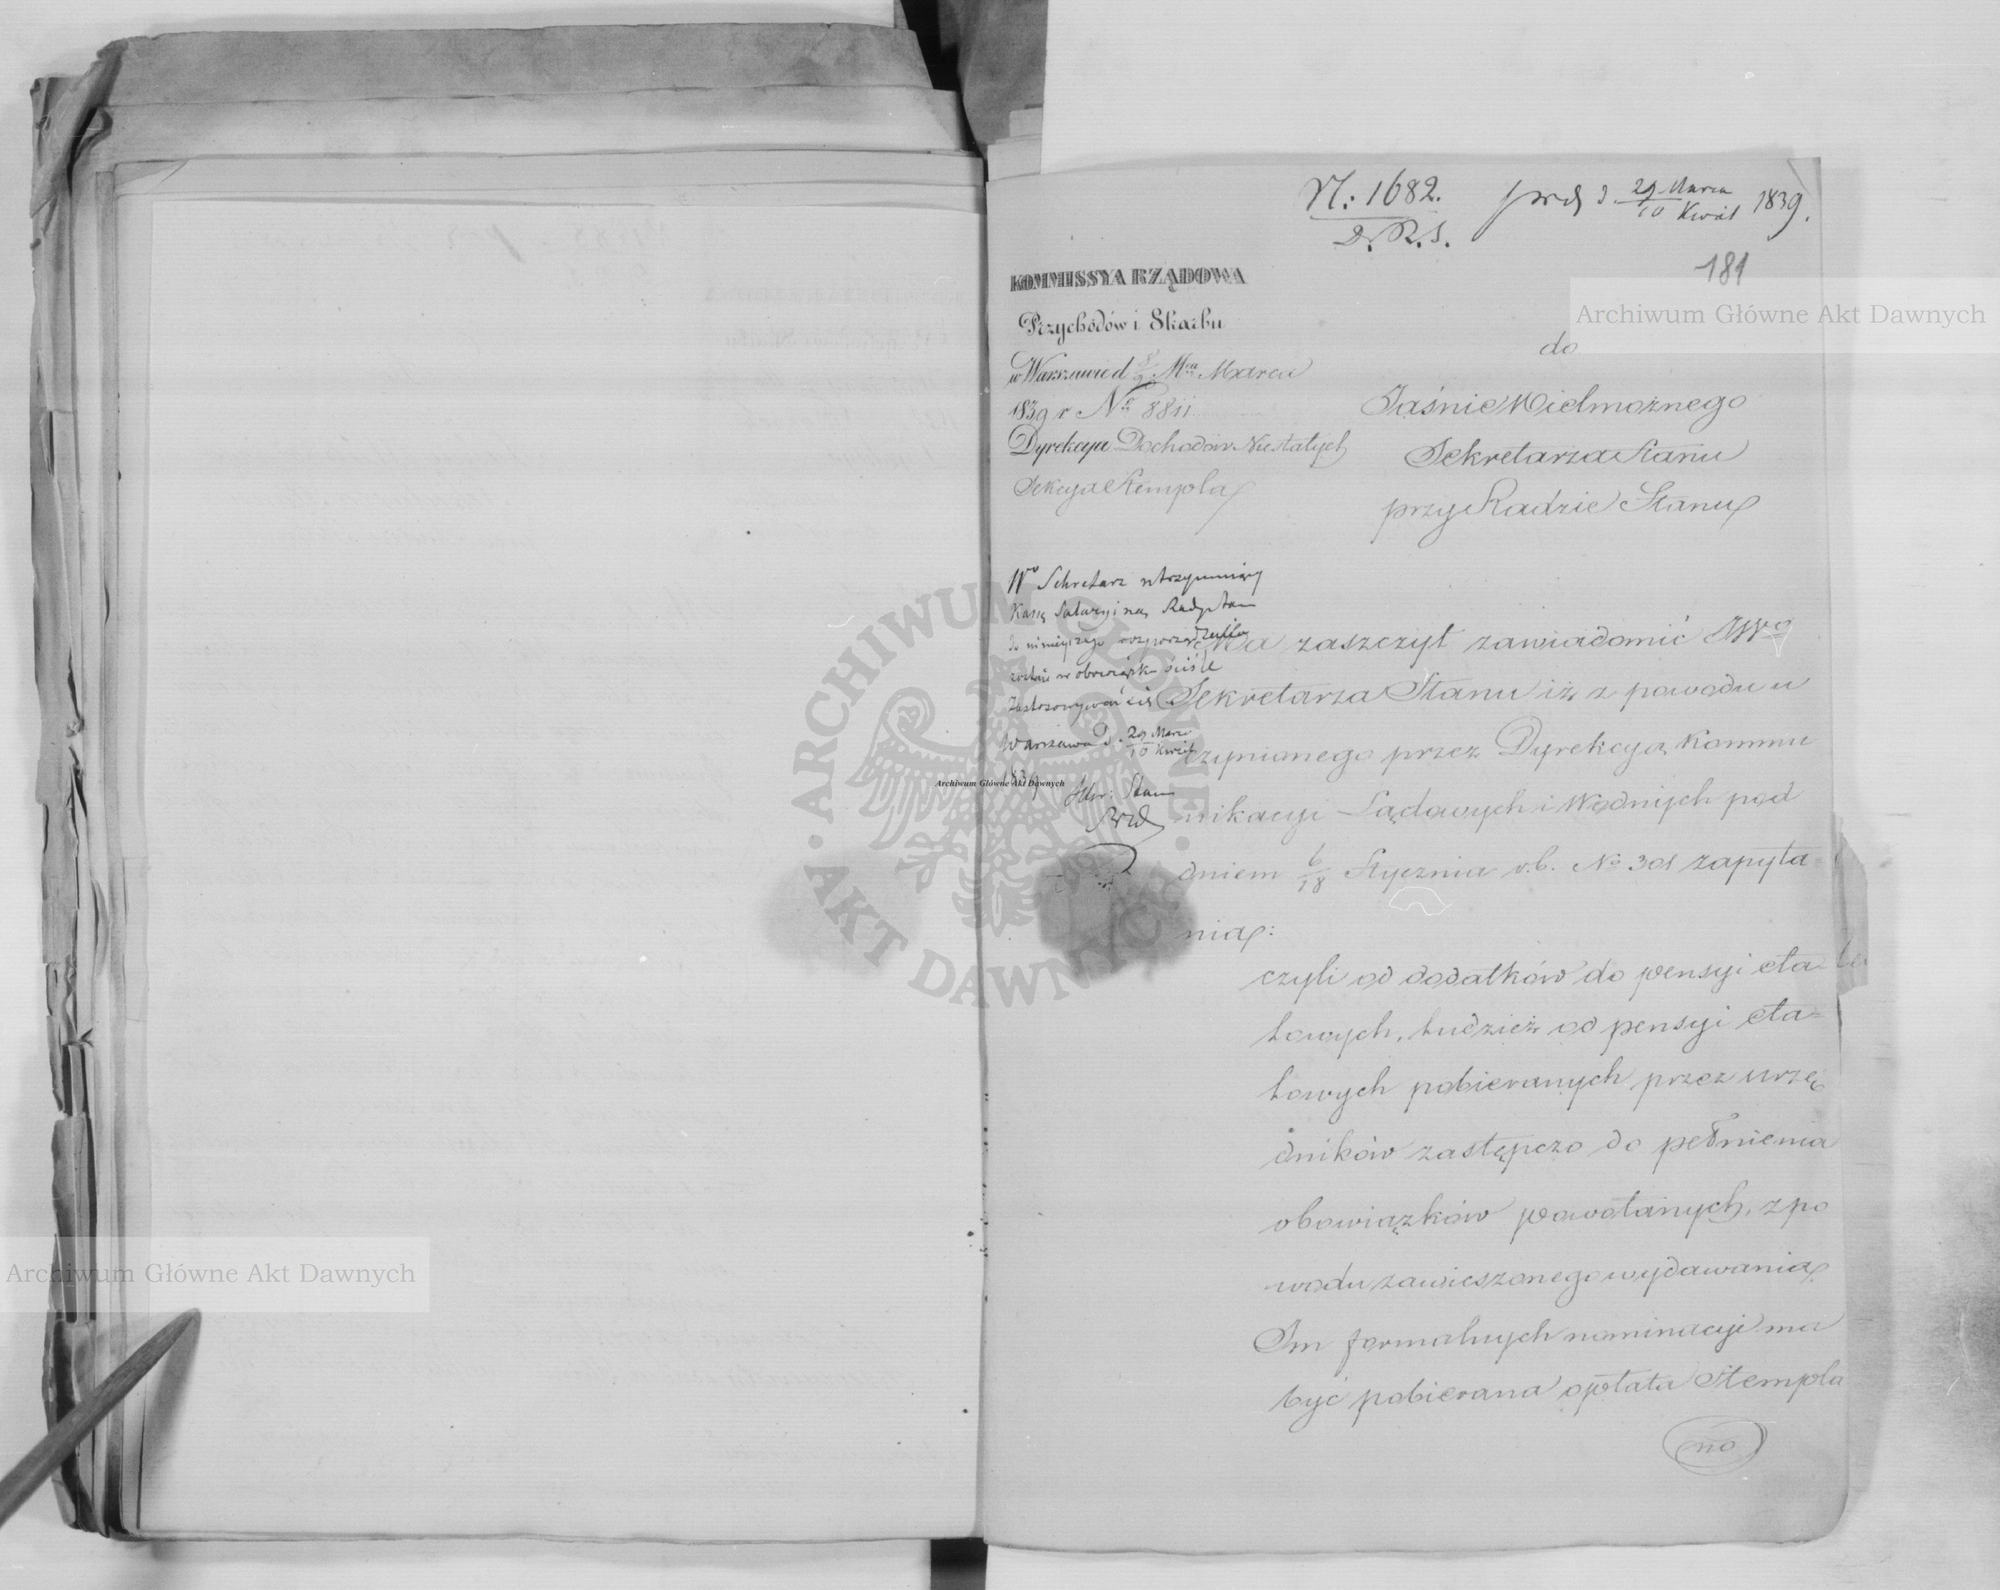 N: 1682.
D. R. S.
prd d 29 Marca / 10 Kwiet 1839.
181
KOMMISSYA RZĄDOWA
Przychodów i Skarbu
w Warszawie d Mca Marca
1839 r No 8811
Dyrekcya Dochodów Niestałych
Sekcya Stempla
do
Jaśnie Wielmożnego
Sekretarza Stanu
przy Radzie Stanu
Wo Sekretarz utrzymujący
Kassę Salaryiną Rady Stanu
do niniejszego rozporządzenia
w obowiązku ściśle
zastosowywać się
Warszawa d. 29 Marca / 10 Kwiet
1839 Sekr: Stanu
Ma zaszczyt zawiadomić JWo
Sekretarza Stanu iż z powodu u
czynionego przez Dyrekcyą Kommu
nikacyi Lądowych i Wodnych pod
dniem 6/18 Stycznia r.b. No 301 zapyta
nia:
czyli od dodatków do pensyi eta
towych, tudzież od pensyi eta=
towych pobieranych przez urzę
dników zastępczo do pełnienia
obowiązków powołanych, z po
wodu zawieszonego wydawania
Im formalnych nominacyi ma
być pobierana opłata Stempla
no
Archiwum Główne Akt Dawnych
Archiwum Główne Akt Dawnych
Archiwum Główne Akt Dawnych
ARCHIWUM GŁÓWNE · AKT DAWNYCH ·